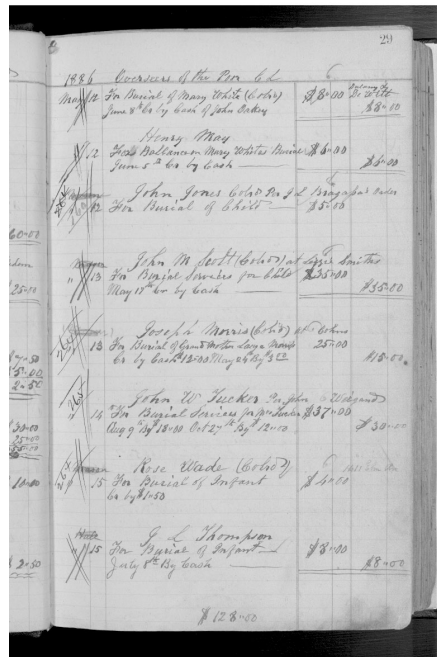 29
1886 Overseers of the Poor C L
May 12 For Burial of Mary White (Colord) $8-00
June 8th Cr by Cash of John Oakey $8-00
Henry May
" 12 Ballance on Mary Whites Burial $6-00
June 5th Cr by Cash $6-00
John Jones Colord Per J L Order
260
12 For Burial of Child $5-00
John M. Scott (Colord) at Lizzie Smiths
" 13 For Burial Services for Child $35-00
May 17th Cr by Cash $35-00
Joseph Morris (Colord) at
260
13 For Burial of Grand Mother 25-00
Cr by Cash $12-00 May 24th By $3.00 $15-00
265
John W. Tucker Per John Weigand
" 14 For Burial Services for $37-00
Aug 9th By $18-00 Oct 27th By $12-00 $30-00
Rose Wade (Colord)
15 For Burial of Infant $4-00
Cr by $1-50
J. L. Thompson
" 15 For Burial of Infant $8-00
July 8th By Cash $8-00
$128-00
60-00
25-00
$7-50
$5-00
2-50
$30-00
25-00
$55-00
10-00
$2-50